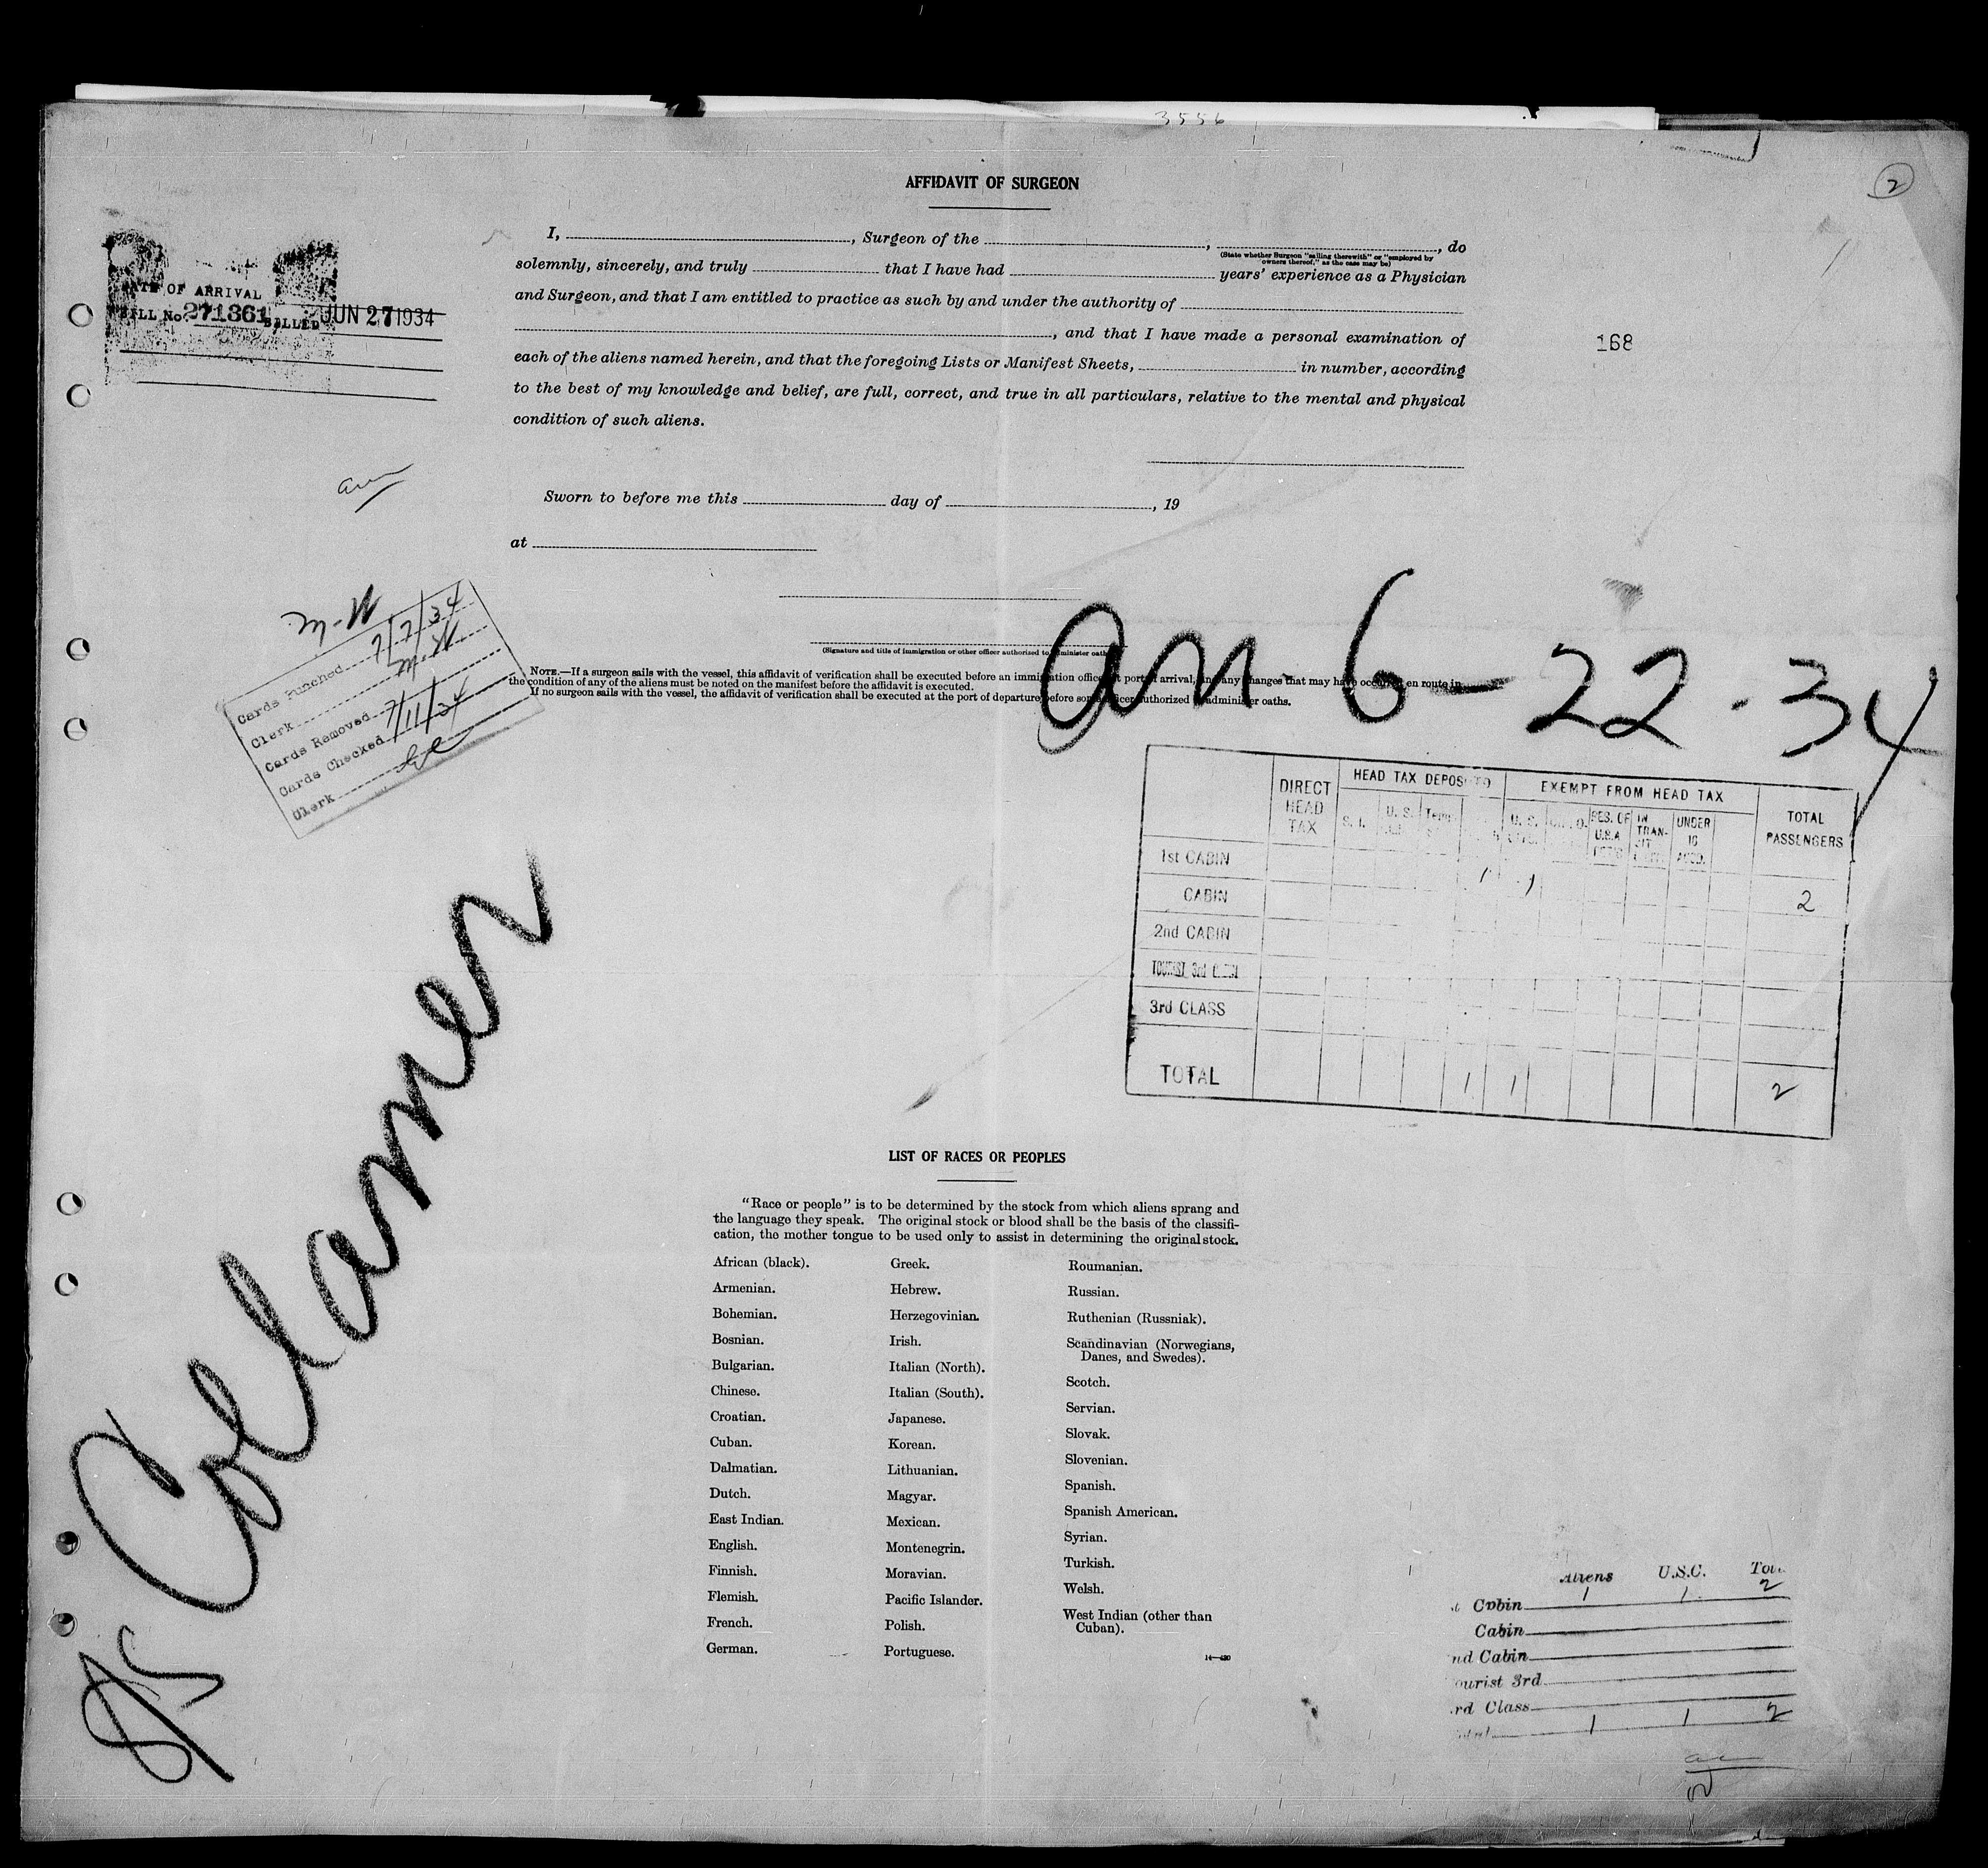 3556
AFFIDAVIT OF SURGEON
2
I, , Surgeon of the , , do
(State whether Surgeon "sailing therewith" or "employed by
owners thereof," as the case may be)
solemnly, sincerely, and truly that I have had years' experience as a Physician
and Surgeon, and that I am entitled to practice as such by and under the authority of
, and that I have made a personal examination of
each of the aliens named herein, and that the foregoing Lists or Manifest Sheets, in number, according
to the best of my knowledge and belief, are full, correct, and true in all particulars, relative to the mental and physical
condition of such aliens.
DATE OF ARRIVAL
BILL No. 271361 BILLED JUN 27 1934
168
Sworn to before me this day of , 19
at
(Signature and title of immigration or other officer authorized to administer oaths)
NOTE.—If a surgeon sails with the vessel, this affidavit of verification shall be executed before an immigration officer at port of arrival, and any changes that may have occurred en route in
the condition of any of the aliens must be noted on the manifest before the affidavit is executed.
If no surgeon sails with the vessel, the affidavit of verification shall be executed at the port of departure before some officer authorized to administer oaths.
M-W
Cards Punched 7/7/34
Clerk M-W
Cards Removed
Cards Checked 7/11/34
Clerk
an-6-22-34
DIRECT HEAD TAX
HEAD TAX DEPOSITED
EXEMPT FROM HEAD TAX
TOTAL PASSENGERS
UNDER 16 ACCD.
1st CABIN
CABIN 1 1 2
2nd CABIN
TOURIST 3rd CABIN
3rd CLASS
TOTAL 1 1 2
S/S Collamer
LIST OF RACES OR PEOPLES
"Race or people" is to be determined by the stock from which aliens sprang and
the language they speak. The original stock or blood shall be the basis of the classifi-
cation, the mother tongue to be used only to assist in determining the original stock.
African (black).
Armenian.
Bohemian.
Bosnian.
Bulgarian.
Chinese.
Croatian.
Cuban.
Dalmatian.
Dutch.
East Indian.
English.
Finnish.
Flemish.
French.
German.
Greek.
Hebrew.
Herzegovinian.
Irish.
Italian (North).
Italian (South).
Japanese.
Korean.
Lithuanian.
Magyar.
Mexican.
Montenegrin.
Moravian.
Pacific Islander.
Polish.
Portuguese.
Roumanian.
Russian.
Ruthenian (Russniak).
Scandinavian (Norwegians,
Danes, and Swedes).
Scotch.
Servian.
Slovak.
Slovenian.
Spanish.
Spanish American.
Syrian.
Turkish.
Welsh.
West Indian (other than
Cuban).
Aliens U.S.C.
Cabin 1 1 2
Cabin
nd Cabin
ourist 3rd
rd Class
1 1 2